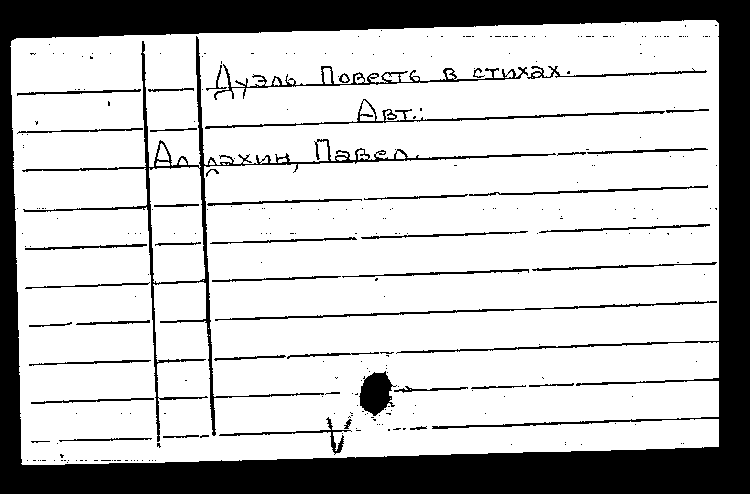 Дуэль. Повесть в стихах.
Авт.:
Павел.